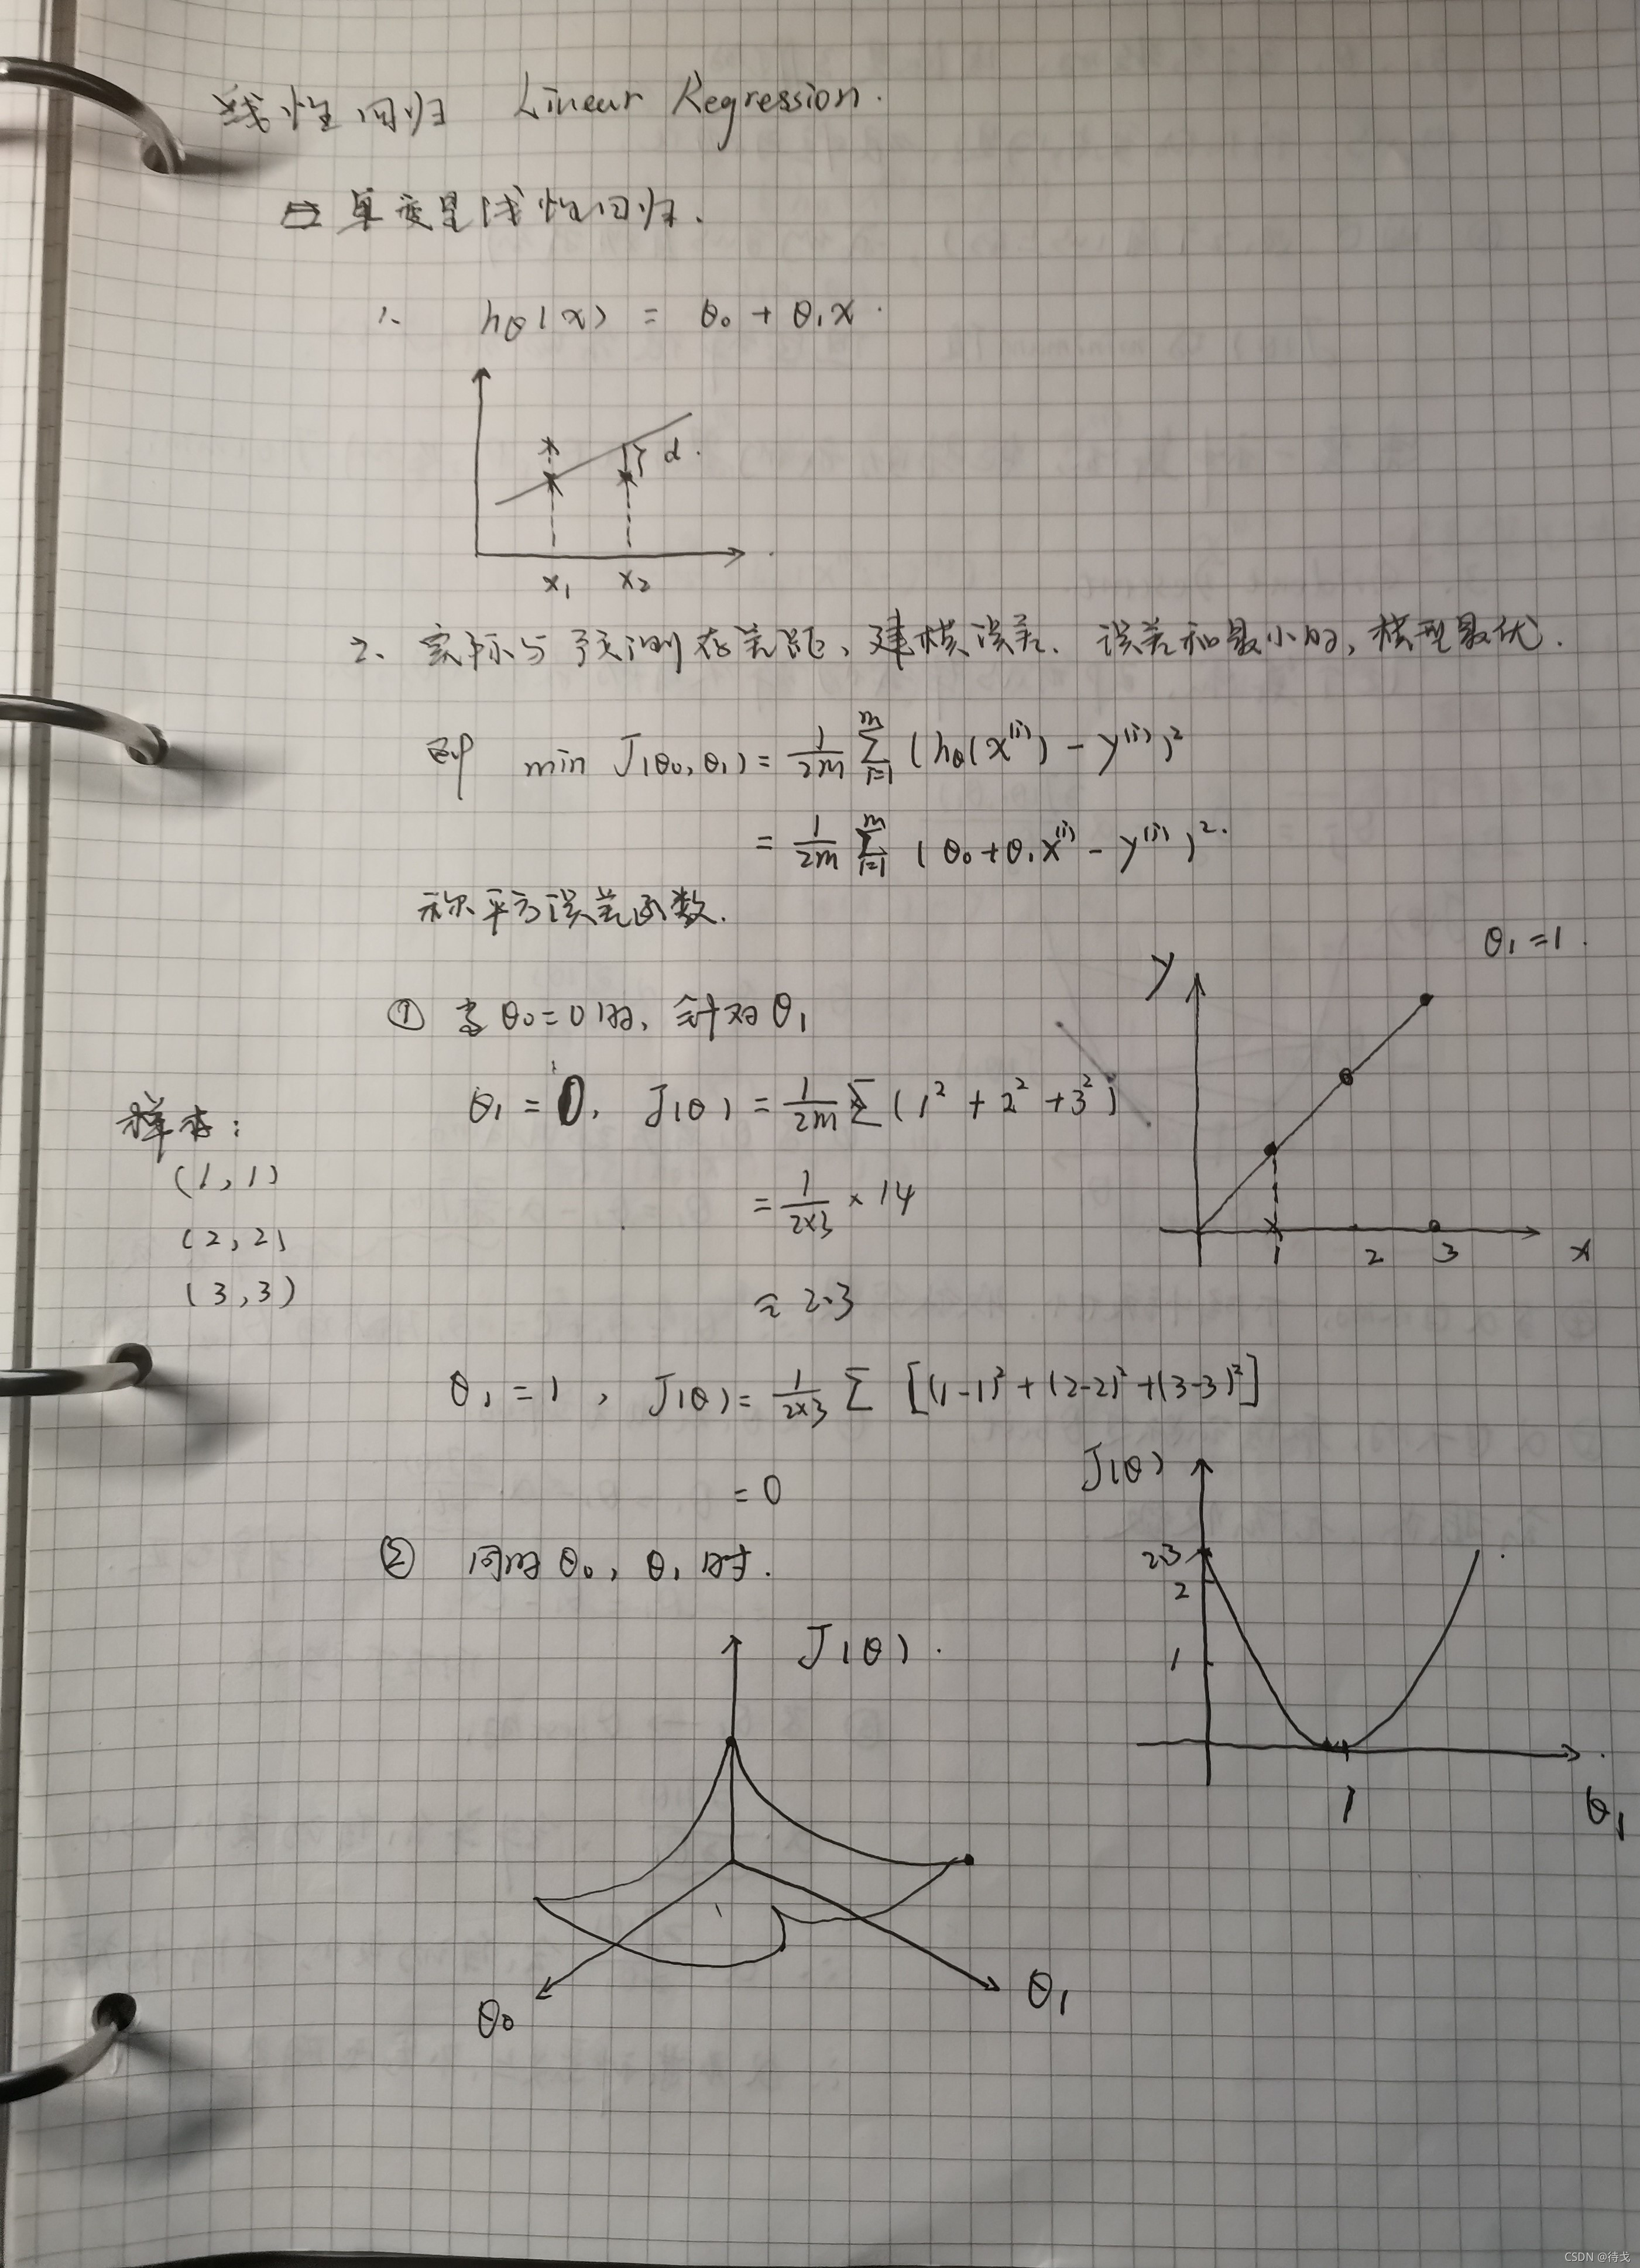 线性回归 Linear Regression.
单变量线性回归.
1. hθ(x) = θ₀ + θ₁x.
d.
x₁ x₂
2、实际与预测存差距,建模误差. 误差和最小时,模型最优.
即 min J(θ₀,θ₁) = \frac{1}{2m} \sum_{i=1}^{m} (hθ(x⁽ⁱ⁾) - y⁽ⁱ⁾)²
= \frac{1}{2m} \sum_{i=1}^{m} (θ₀+θ₁x⁽ⁱ⁾ - y⁽ⁱ⁾)².
称平方误差函数.
θ₁ = 1.
y
① 当θ₀=0时、针对θ₁
θ₁ = 0, J(θ) = \frac{1}{2m} Σ (1² + 2² + 3²)
样本:
(1,1)
= \frac{1}{2×3} × 14
(2,2)
1 2 3 x
(3,3)
≈ 2.3
θ₁ = 1, J(θ) = \frac{1}{2×3} Σ [(1-1)² + (2-2)² + (3-3)²]
= 0
J(θ)
② 同时θ₀, θ₁时.
2.3
2
J(θ).
1
1
θ₁
θ₀ θ₁
CSDN @待戈